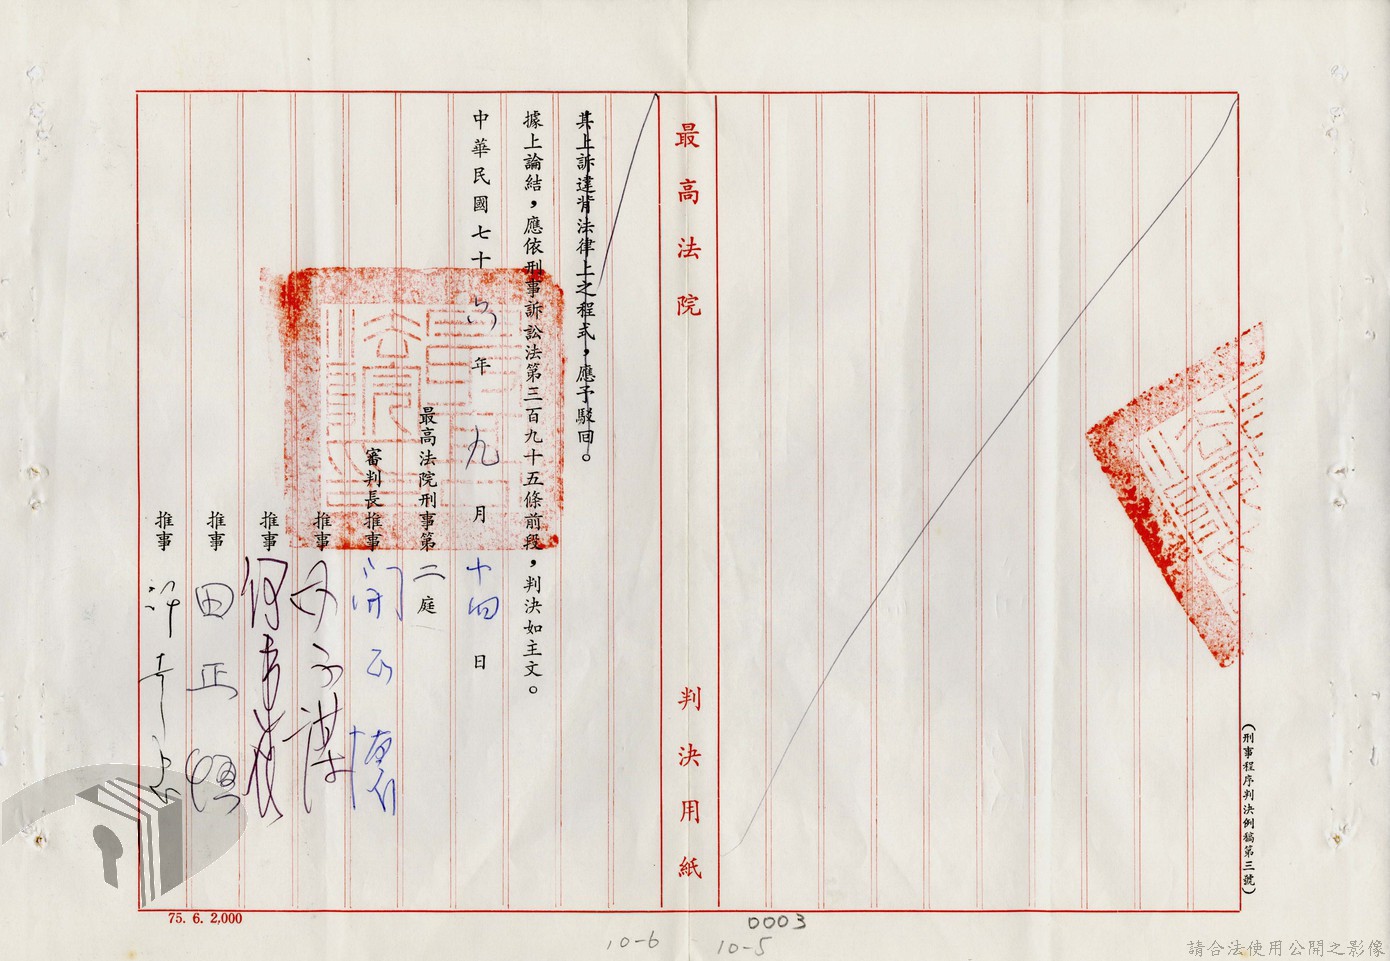 (刑事程序判決例稿第三號)
最高法院 判決用紙
其上訴違背法律上之程式，應予駁回。
據上論結，應依刑事訴訟法第三百九十五條前段，判決如主文。
中華民國七十六年九月十四日
最高法院刑事第二庭
審判長推事
推事
推事
推事 田正恒
推事
75. 6. 2,000
0003
10-6
10-5
請合法使用公開之影像